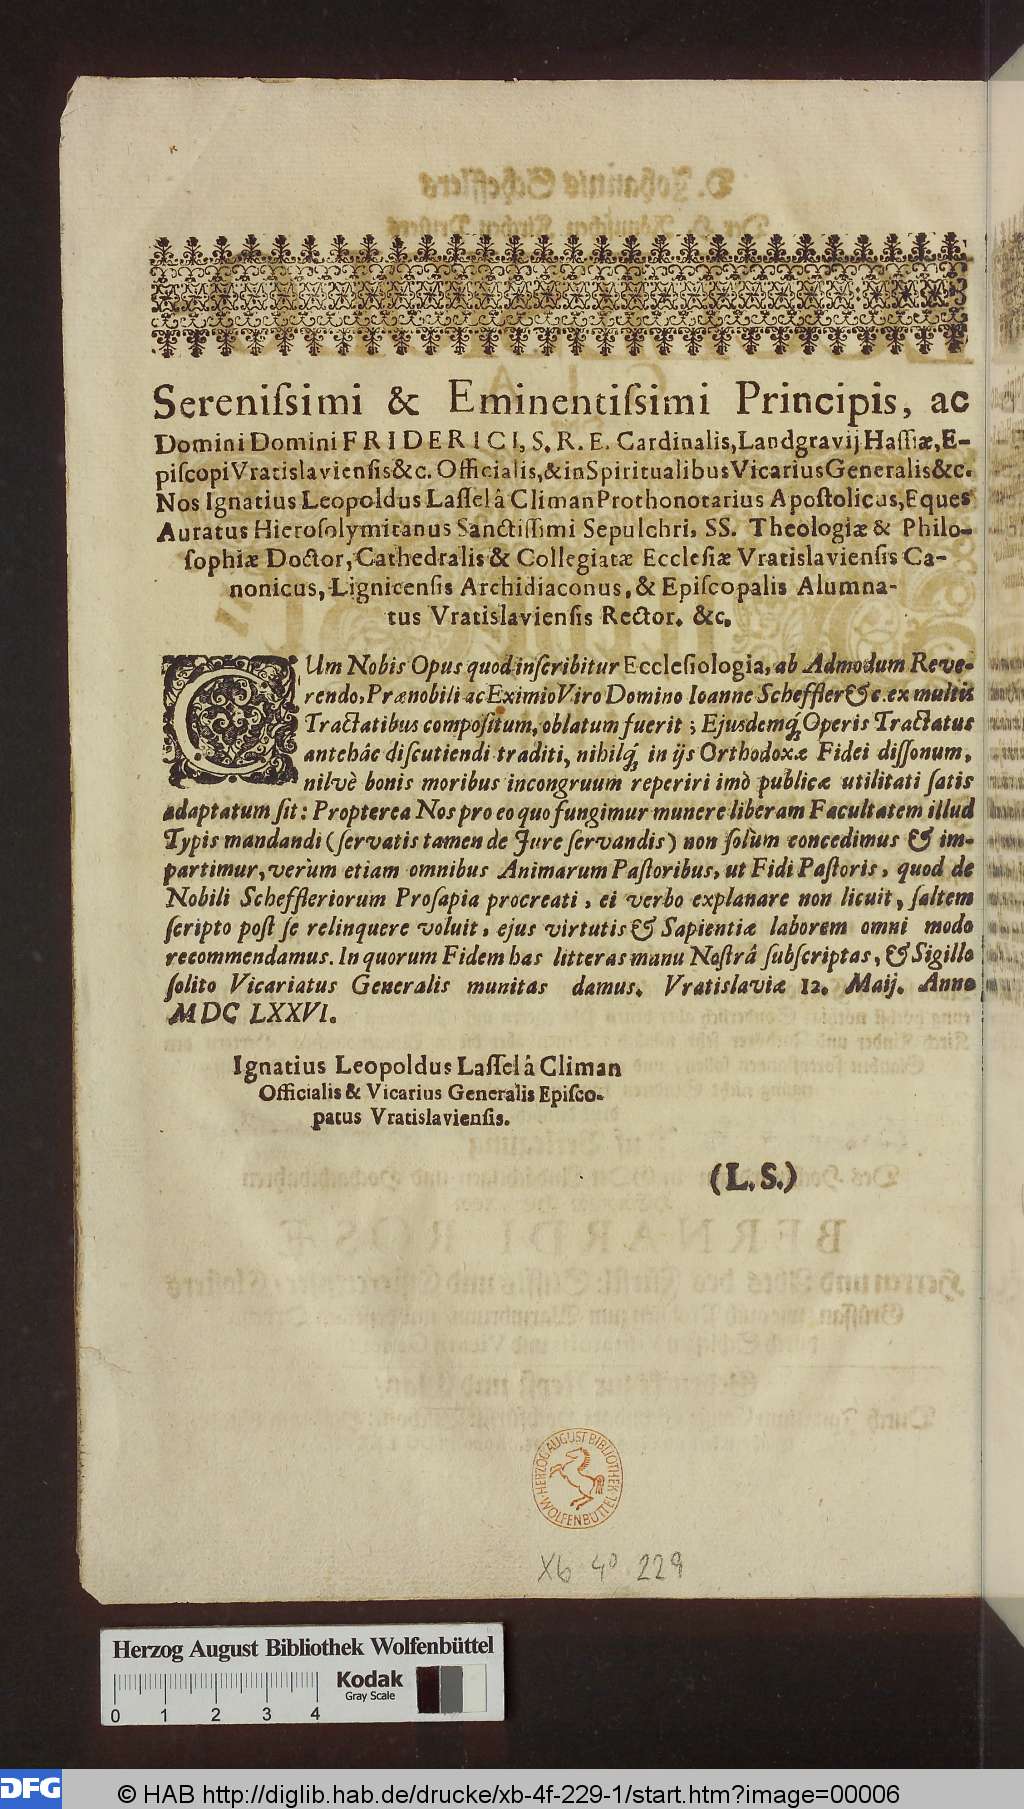 Sereniſsimi & Eminentiſsimi Principis, ac
Domini Domini FRIDERICI, S. R. E. Cardinalis, Landgravij Haſſiæ, E-
piſcopi Vratislaviensis &c. Officialis, & in Spiritualibus Vicarius Generalis &c.
Nos Ignatius Leopoldus Laſſel â Climan Prothonotarius Apoſtolicus, Eques
Auratus Hieroſolymitanus Sanctiſſimi Sepulchri, SS. Theologiæ & Philo-
ſophiæ Doctor, Cathedralis & Collegiatæ Eccleſiæ Vratislavienſis Ca-
nonicus, Lignicenſis Archidiaconus, & Epiſcopalis Alumna-
tus Vratislavienſis Rector. &c.
CUm Nobis Opus quod inſcribitur Eccleſiologia, ab Admodum Reve-
rendo, Prænobili ac Eximio Viro Domino Ioanne Scheffler &c. ex multis
Tractatibus compoſitum, oblatum fuerit; Ejusdemq́ Operis Tractatus
antehâc diſcutiendi traditi, nihilq́ in ijs Orthodoxæ Fidei diſſonum,
nilvè bonis moribus incongruum reperiri imò publicæ utilitati ſatis
adaptatum ſit: Propterea Nos pro eo quo fungimur munere liberam Facultatem illud
Typis mandandi (ſervatis tamen de Jure ſervandis) non ſolùm concedimus & im-
partimur, verùm etiam omnibus Animarum Paſtoribus, ut Fidi Paſtoris, quod de
Nobili Scheffleriorum Proſapia procreati, ei verbo explanare non licuit, ſaltem
ſcripto poſt ſe relinquere voluit, ejus virtutis & Sapientiæ laborem omni modo
recommendamus. In quorum Fidem has litteras manu Noſtrâ ſubſcriptas, & Sigillo
ſolito Vicariatus Generalis munitas damus. Vratislaviæ 12. Maij. Anno
MDC LXXVI.
Ignatius Leopoldus Laſſel â Climan
Officialis & Vicarius Generalis Epiſco-
patus Vratislavienſis.
(L. S.)
HERZOG AUGUST BIBLIOTHEK WOLFENBÜTTEL
Xb 4° 229
Herzog August Bibliothek Wolfenbüttel
Kodak
Gray Scale
0 1 2 3 4
DFG
© HAB http://diglib.hab.de/drucke/xb-4f-229-1/start.htm?image=00006